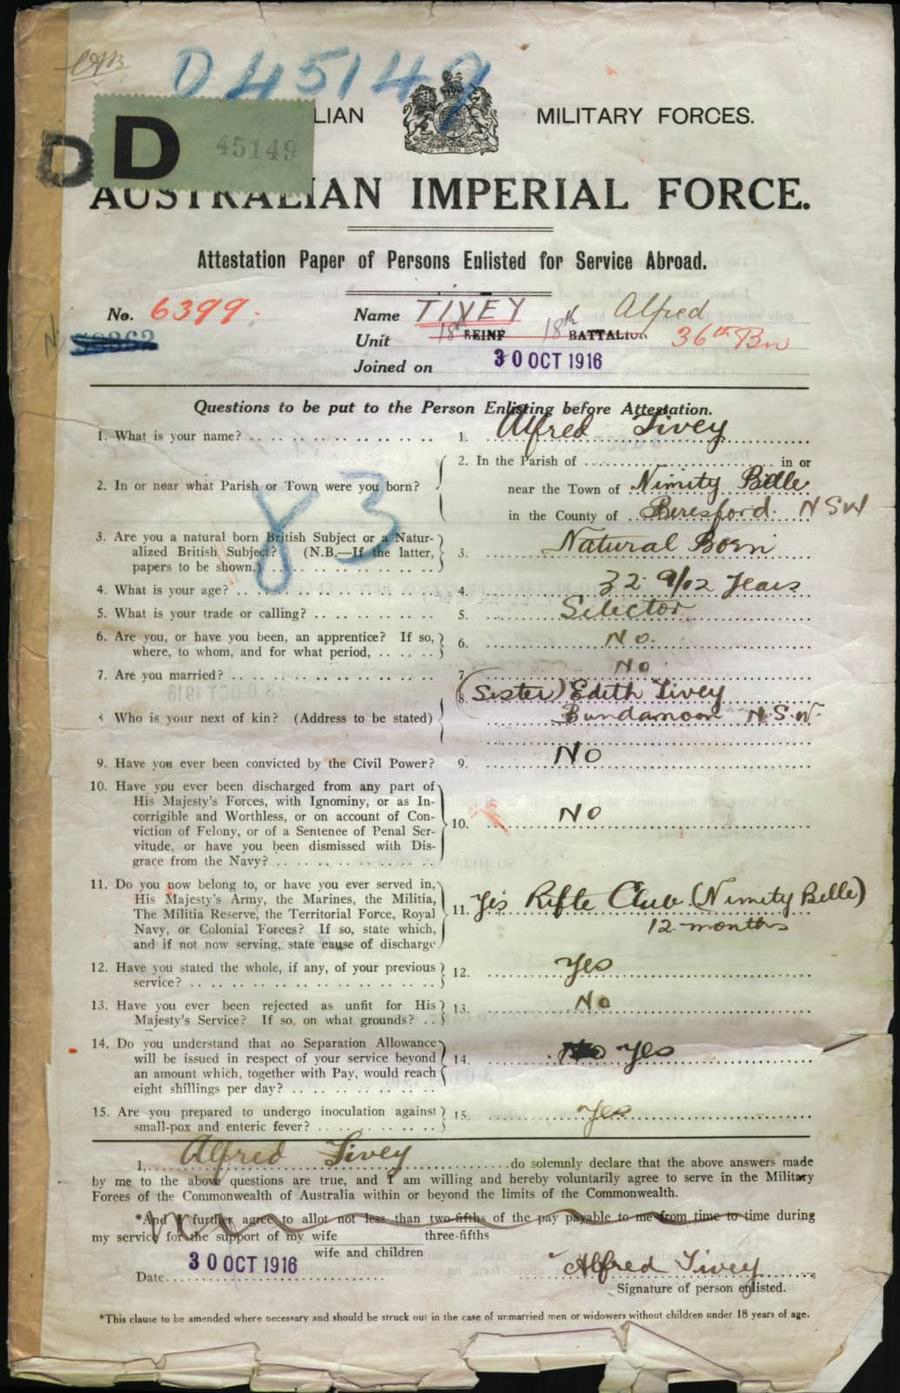 D 45149
D D 45149
LIAN MILITARY FORCES.
AUSTRALIAN IMPERIAL FORCE.
Attestation Paper of Persons Enlisted for Service Abroad.
No. 6399. Name TIVEY Alfred
Unit 18 REINF 18th BATTALION 36th Bn
Joined on 30 OCT 1916
Questions to be put to the Person Enlisting before Attestation.
1. What is your name? 1. Alfred Tivey
2. In the Parish of in or
2. In or near what Parish or Town were you born? near the Town of Nimity Belle
in the County of Beresford. NSW
83
3. Are you a natural born British Subject or a Natur-
alized British Subject? (N.B.—If the latter, 3. Natural Born
papers to be shown.)
4. What is your age? 4. 32 9/12 Years
5. What is your trade or calling? 5. Selector
6. Are you, or have you been, an apprentice? If so, 6. No.
where, to whom, and for what period,
7. Are you married? 7. No
8. (Sister) Edith Tivey
Who is your next of kin? (Address to be stated) Bundanoon N.S.W.
9. Have you ever been convicted by the Civil Power? 9. No
10. Have you ever been discharged from any part of
His Majesty's Forces, with Ignominy, or as In-
corrigible and Worthless, or on account of Con-
viction of Felony, or of a Sentence of Penal Ser- 10. No
vitude, or have you been dismissed with Dis-
grace from the Navy?
11. Do you now belong to, or have you ever served in,
His Majesty's Army, the Marines, the Militia,
The Militia Reserve, the Territorial Force, Royal 11. Yes Rifle Club (Nimity Belle)
Navy, or Colonial Forces? If so, state which, 12 months
and if not now serving, state cause of discharge
12. Have you stated the whole, if any, of your previous 12. Yes
service?
13. Have you ever been rejected as unfit for His 13. No
Majesty's Service? If so, on what grounds?
14. Do you understand that no Separation Allowance
will be issued in respect of your service beyond 14. No Yes
an amount which, together with Pay, would reach
eight shillings per day?
15. Are you prepared to undergo inoculation against 15. Yes
small-pox and enteric fever?
I, Alfred Tivey do solemnly declare that the above answers made
by me to the above questions are true, and I am willing and hereby voluntarily agree to serve in the Military
Forces of the Commonwealth of Australia within or beyond the limits of the Commonwealth.
*And I further agree to allot not less than two-fifths of the pay payable to me from time to time during
my service for the support of my wife three-fifths
wife and children
30 OCT 1916
Date Alfred Tivey
Signature of person enlisted.
*This clause to be amended where necessary and should be struck out in the case of unmarried men or widowers without children under 18 years of age.